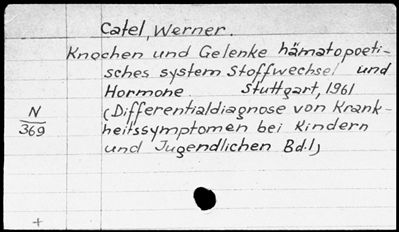 Catel, Werner.
Knochen und Gelenke hämatopoeti-
sches system Stoffwechsel und
Hormone Stuttgart, 1961
N
369
(Differentialdiagnose von Krank-
heitssymptomen bei Kindern
und Jugendlichen Bd.1)
+